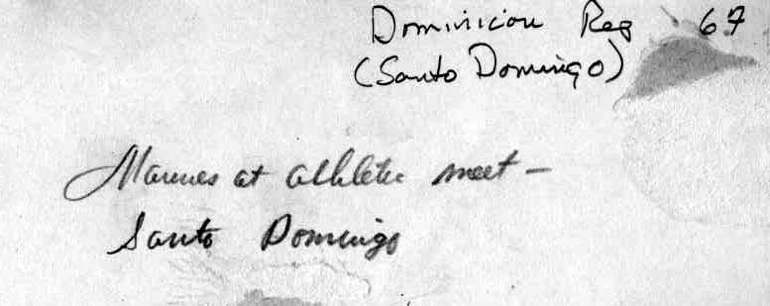 Dominican Rep 67
(Santo Domingo)
Marines at athletic meet -
Santo Domingo